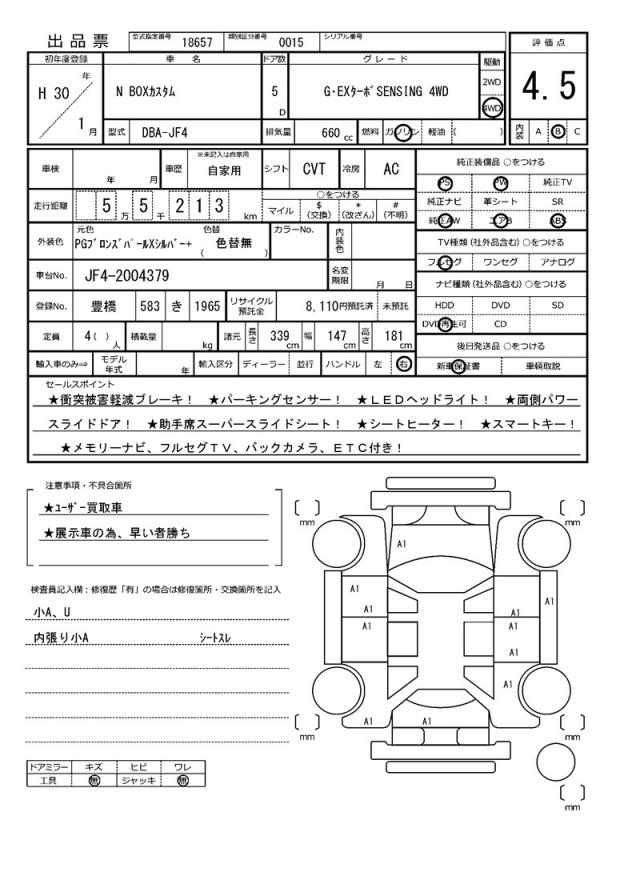 出品票 型式指定番号 18657 類別区分番号 0015 シリアル番号
評価点
4.5
内装 A B C
初年度登録 車名 ドア数 グレード 駆動
H 30 年 1 月
N BOXカスタム 5 D G・EXターボSENSING 4WD 2WD 4WD
型式 DBA-JF4 排気量 660 cc 燃料 ガソリン 軽油 ( )
車検 年 月 車歴 ※未記入は自家用 自家用 シフト CVT 冷房 AC
走行距離 5 万 5 千 2 1 3 km ○をつける
マイル $(交換) *(改ざん) #(不明)
外装色 元色 PGブロンズパールXシルバー+ 色替 ( 色替無 ) カラーNo. 内装色
車台No. JF4-2004379 名変期限 月 日
登録No. 豊橋 583 き 1965 リサイクル預託金 8,110円預託済 未預託
定員 4( )人 積載量 kg 諸元 長さ 339 cm 幅 147 cm 高さ 181 cm
輸入車のみ⇒ モデル年式 年 輸入区分 ディーラー 並行 ハンドル 左 右
純正装備品 ○をつける
PS PW 純正TV
純正ナビ 革シート SR
純正AW エアB ABS
TV種類(社外品含む)○をつける
フルセグ ワンセグ アナログ
ナビ種類(社外品含む)○をつける
HDD DVD SD
DVD再生可 CD
後日発送品 ○をつける
新車保証書 車輌取説
セールスポイント
★衝突被害軽減ブレーキ! ★パーキングセンサー! ★LEDヘッドライト! ★両側パワー
スライドドア! ★助手席スーパースライドシート! ★シートヒーター! ★スマートキー!
★メモリーナビ、フルセグTV、バックカメラ、ETC付き!
注意事項・不具合箇所
★ユーザー買取車
★展示車の為、早い者勝ち
検査員記入欄:修復歴「有」の場合は修復箇所・交換箇所を記入
小A、U
内張り小A シートスレ
ドアミラー キズ ヒビ ワレ
工具 無 ジャッキ 無
mm mm
A1
A1 A1
A1 A1
A1 A1
A1
A1
A1 A1
mm mm
mm